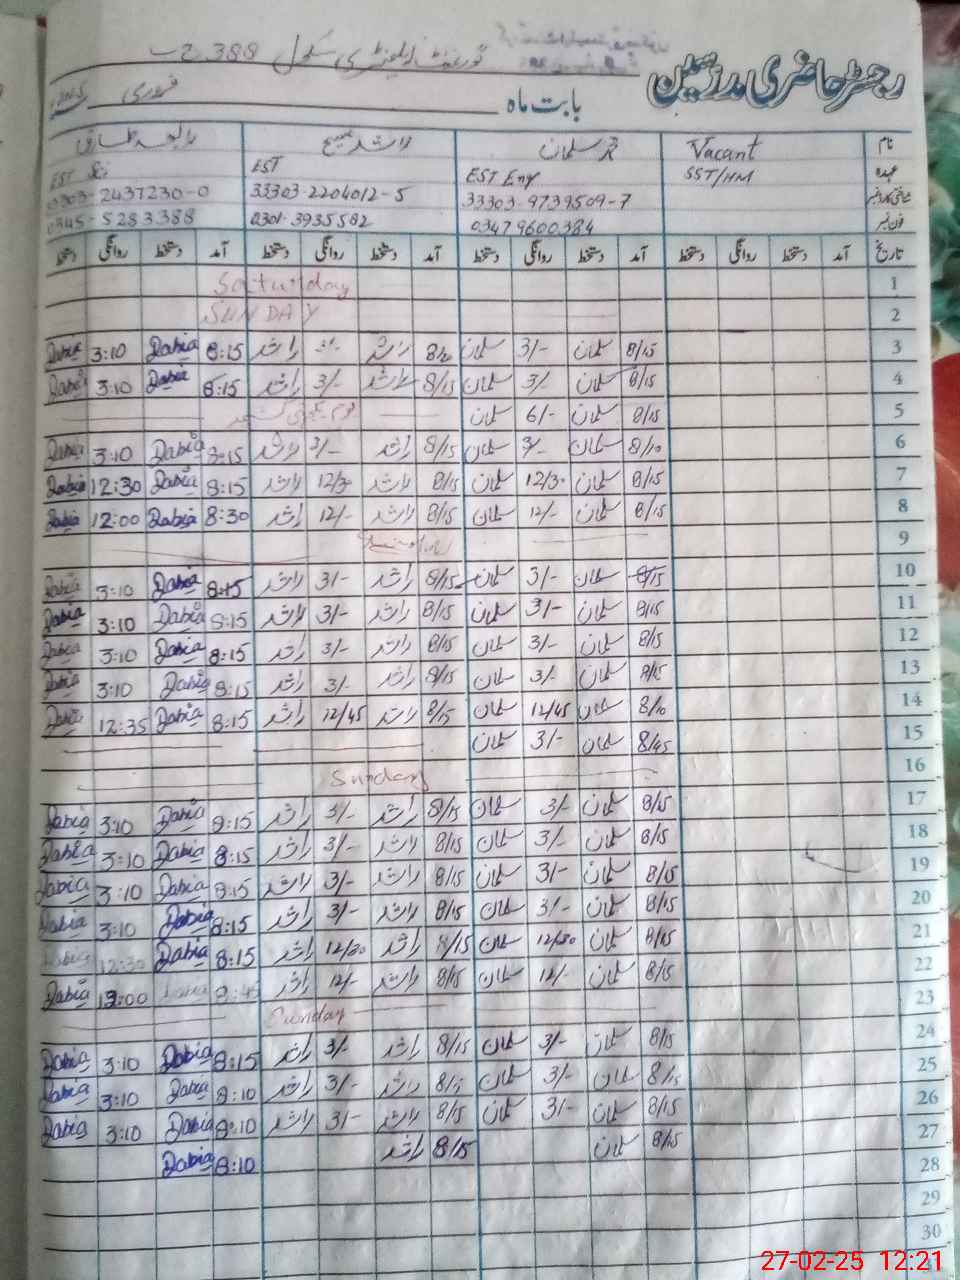 رجسٹر حاضری مدرسین
گورنمنٹ ایلیمنٹری سکول 388 ج ب
بابت ماہ فروری
نام Vacant محمد سلمان راشد مسیح رابعہ طارق
عہدہ SST/HM EST Eng EST EST Sci
شناختی کارڈ نمبر 33303-9739509-7 33303-2204012-5 33303-2437230-0
فون نمبر 03479600384 0301-3935582 0345-5283388
تاریخ آمد دستخط روانگی دستخط آمد دستخط روانگی دستخط آمد دستخط روانگی دستخط آمد دستخط روانگی دستخط
1 Saturday
2 SUNDAY
3 8/15 سلمان 3/- سلمان راشد 3/- راشد 8:15 Rabia 3:10 Rabia
4 8/15 سلمان 3/- سلمان 8/15 راشد 3/- راشد 8:15 Rabia 3:10 Rabia
5 8/15 سلمان 6/- سلمان یوم یکجہتی کشمیر
6 8/10 سلمان 3/- سلمان 8/15 راشد 3/- راشد Rabia 3:10 Rabia
7 8/15 سلمان 12/30 سلمان 8/15 راشد 12/30 راشد 8:15 Rabia 12:30 Rabia
8 8/15 سلمان 12/- سلمان 8/15 راشد 12/- راشد 8:30 Rabia 12:00 Rabia
9
10 8/15 سلمان 3/- سلمان 8/15 راشد 3/- راشد 8:15 Rabia 3:10 Rabia
11 8/15 سلمان 3/- سلمان 8/15 راشد 3/- راشد 8:15 Rabia 3:10 Rabia
12 8/15 سلمان 3/- سلمان 8/15 راشد 3/- راشد 8:15 Rabia 3:10 Rabia
13 8/15 سلمان 3/- سلمان 8/15 راشد 3/- راشد 8:15 Rabia 3:10 Rabia
14 8/10 سلمان 12/45 سلمان 8/15 راشد 12/45 راشد 8:15 Rabia 12:35 Rabia
15 8/45 سلمان 3/- سلمان
16 Sunday
17 8/15 سلمان 3/- سلمان 8/15 راشد 3/- راشد 8:15 Rabia 3:10 Rabia
18 8/15 سلمان 3/- سلمان 8/15 راشد 3/- راشد 8:15 Rabia 3:10 Rabia
19 8/15 سلمان 3/- سلمان 8/15 راشد 3/- راشد 8:15 Rabia 3:10 Rabia
20 8/15 سلمان 3/- سلمان 8/15 راشد 3/- راشد 8:15 Rabia 3:10 Rabia
21 8/15 سلمان 12/30 سلمان 8/15 راشد 12/30 راشد 8:15 Rabia 12:30 Rabia
22 8/15 سلمان 12/- سلمان 8/15 راشد 12/- راشد Rabia 12:00 Rabia
23 Sunday
24 8/15 سلمان 3/- سلمان 8/15 راشد 3/- راشد 8:15 Rabia 3:10 Rabia
25 8/15 سلمان 3/- سلمان 8/15 راشد 3/- راشد 8:10 Rabia 3:10 Rabia
26 8/15 سلمان 3/- سلمان 8/15 راشد 3/- راشد 8:10 Rabia 3:10 Rabia
27 8/15 سلمان 8/15 راشد 8:10 Rabia
28
29
30
31
27-02-25 12:21